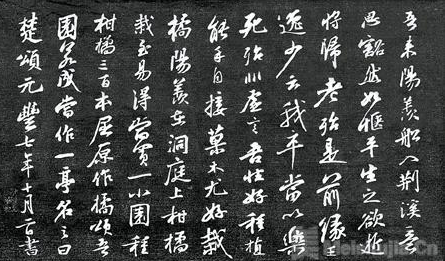 吾來陽羨船入荊溪意
思豁然如愜平生之欲逝
將歸老殆是前緣王
逸少云我卒當以樂
死殆非虛言吾性好種植
能手自接菓木尤好栽
橘陽羨在洞庭上柑橘
栽至易得當買一小園種
柑橘三百本屈原作橘頌吾
園若成當作一亭名之曰
楚頌元豐七年十月二日書